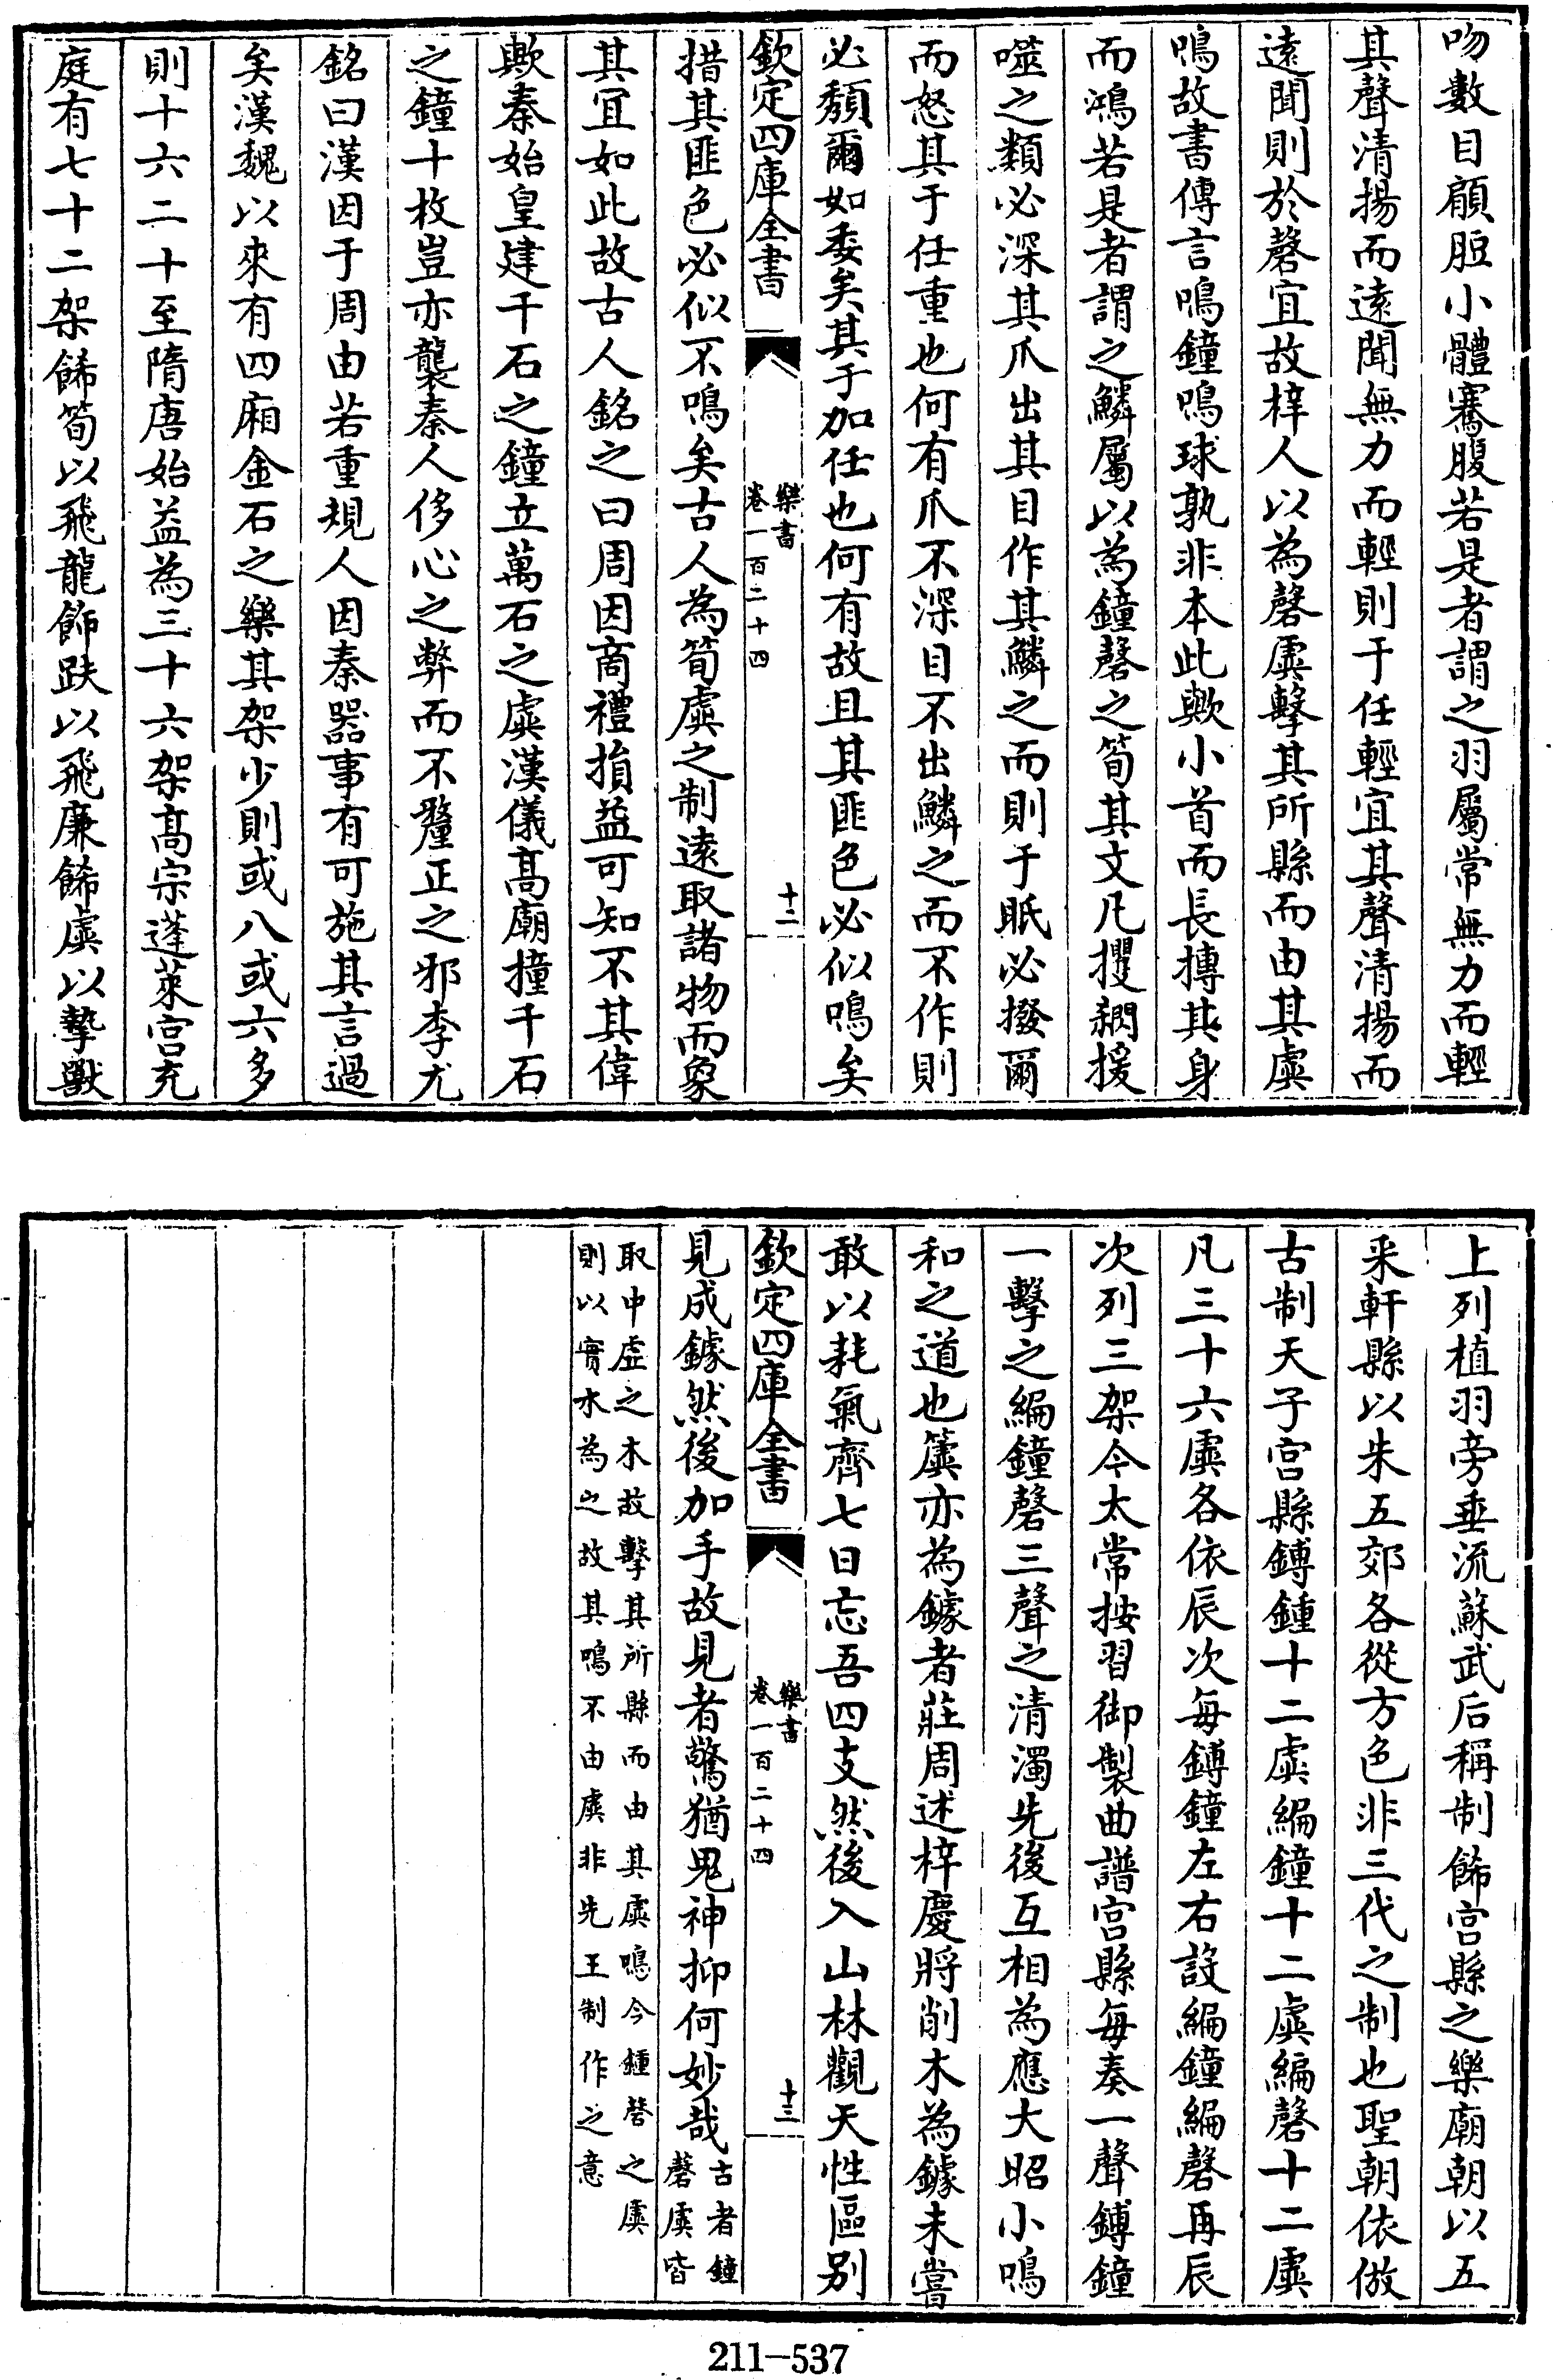 吻數目顧脰小體騫腹若是者謂之羽屬常無力而輕
其聲清揚而遠聞無力而輕則于任輕宜其聲清揚而
遠聞則於磬宜故梓人以為磬虡擊其所縣而由其虡
鳴故書傳言鳴鐘鳴球孰非本此歟小首而長摶其身
而鴻若是者謂之鱗屬以為鐘磬之筍其文凡攫閷援
噬之類必深其爪出其目作其鱗之而則于眂必撥爾
而怒其于任重也何有爪不深目不出鱗之而不作則
必頽爾如委矣其于加任也何有故且其匪色必似鳴矣
欽定四庫全書
樂書
卷一百二十四
十二
措其匪色必似不鳴矣古人為筍虡之制遠取諸物而象
其宜如此故古人銘之曰周因商禮損益可知不其偉
歟秦始皇建千石之鐘立萬石之虡漢儀高廟撞千石
之鐘十枚豈亦襲秦人侈心之弊而不釐正之邪李尤
銘曰漢因于周由若重規人因秦器事有可施其言過
矣漢魏以來有四廂金石之樂其架少則或八或六多
則十六二十至隋唐始益為三十六架高宗蓬萊宮充
庭有七十二架餙筍以飛龍飾趺以飛廉餙虡以摯獸
上列植羽旁垂流蘇武后稱制餙宮縣之樂廟朝以五
采軒縣以朱五郊各從方色非三代之制也聖朝依倣
古制天子宮縣鏄鍾十二虡編鐘十二虡編磬十二虡
凡三十六虡各依辰次每鏄鐘左右設編鐘編磬再辰
次列三架今太常按習御製曲譜宮縣每奏一聲鏄鐘
一擊之編鐘磬三聲之清濁先後互相為應大昭小鳴
和之道也簴亦為鐻者莊周述梓慶將削木為鐻未嘗
敢以耗氣齊七日忘吾四支然後入山林觀天性區別
欽定四庫全書
樂書
卷一百二十四
十三
見成鐻然後加手故見者驚猶鬼神抑何妙哉古者鐘
磬虡皆
取中虛之木故擊其所縣而由其虡鳴今鍾磬之虡
則以實木為之故其鳴不由虡非先王制作之意
211—537